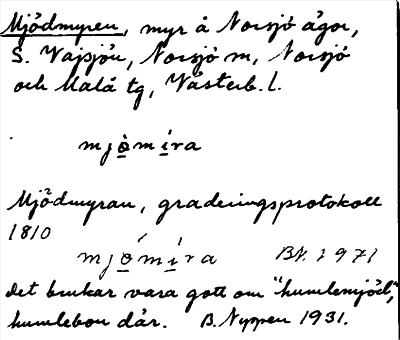 Mjödmyren, myr å Norsjö ägor,
S. Vajsjön, Norsjö sn, Norsjö
och Malå tg, Västerb. l.
mjò̱mi̱ra
Mjödmyran, graderingsprotokoll
1810
mjó̱mí̱ra BN. 1971
Det brukar vara gott om "humlemjöd",
humlebon där. B. Nyppen 1931.